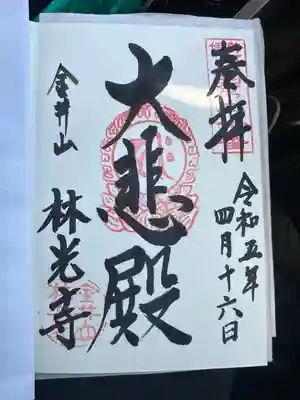 奉拝
令和五年
四月十六日
大悲殿
金井山
林光寺